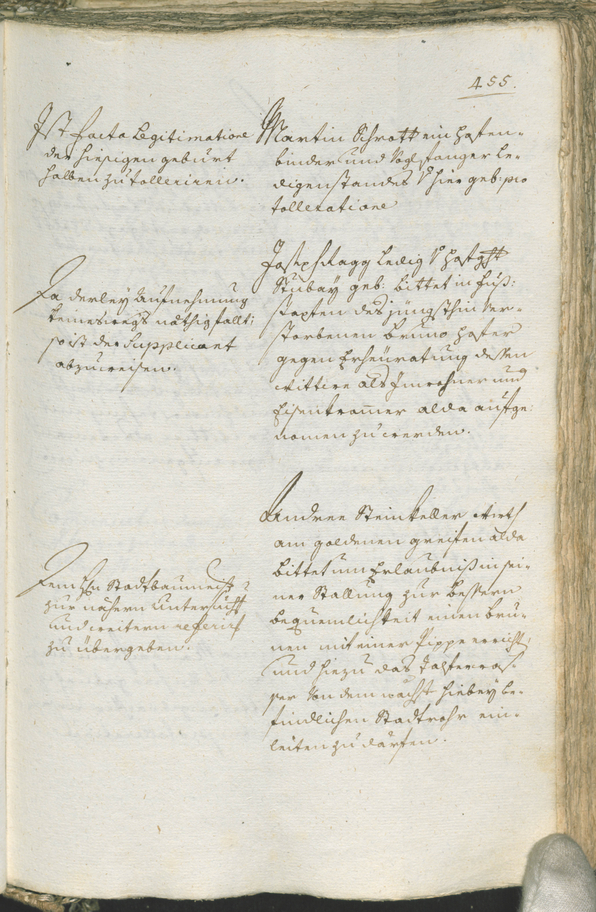 455.
Ist facta Legitimatione
der hiesigen geburt
halben zu tolleriren.
Martin Schrott ein hafen-
binder und Vogl fanger le-
digen standes v hier geb: pro
tolleratione
Da derley Aufnehmung
keineswegs nöthig fallt:
so ist der Supplicant
abzuweisen.
Joseph Ragg ledig v
Stubay geb: bittet in fuß-
stapfen des jüngsthin ver-
storbenen Bruno hofer
gegen Erheuratung dessen
wittwe als Inwohner und
Eisenkramer alda aufge-
nomen zu werden.
Dem Hn Stadtbaumeister
zur nähern Untersucht
und weitern referirn
zu übergeben.
Andree Steinkeller wirth
am goldenen greifen alda
bittet um Erlaubniß in sei-
ner Stallung zur bessern
bequemlichkeit einen bru-
nen mit einer Pippe
und hiezu das
ser von dem nächst hiebey be-
findlichen Stadtrohr ein-
leiten zu därfen.